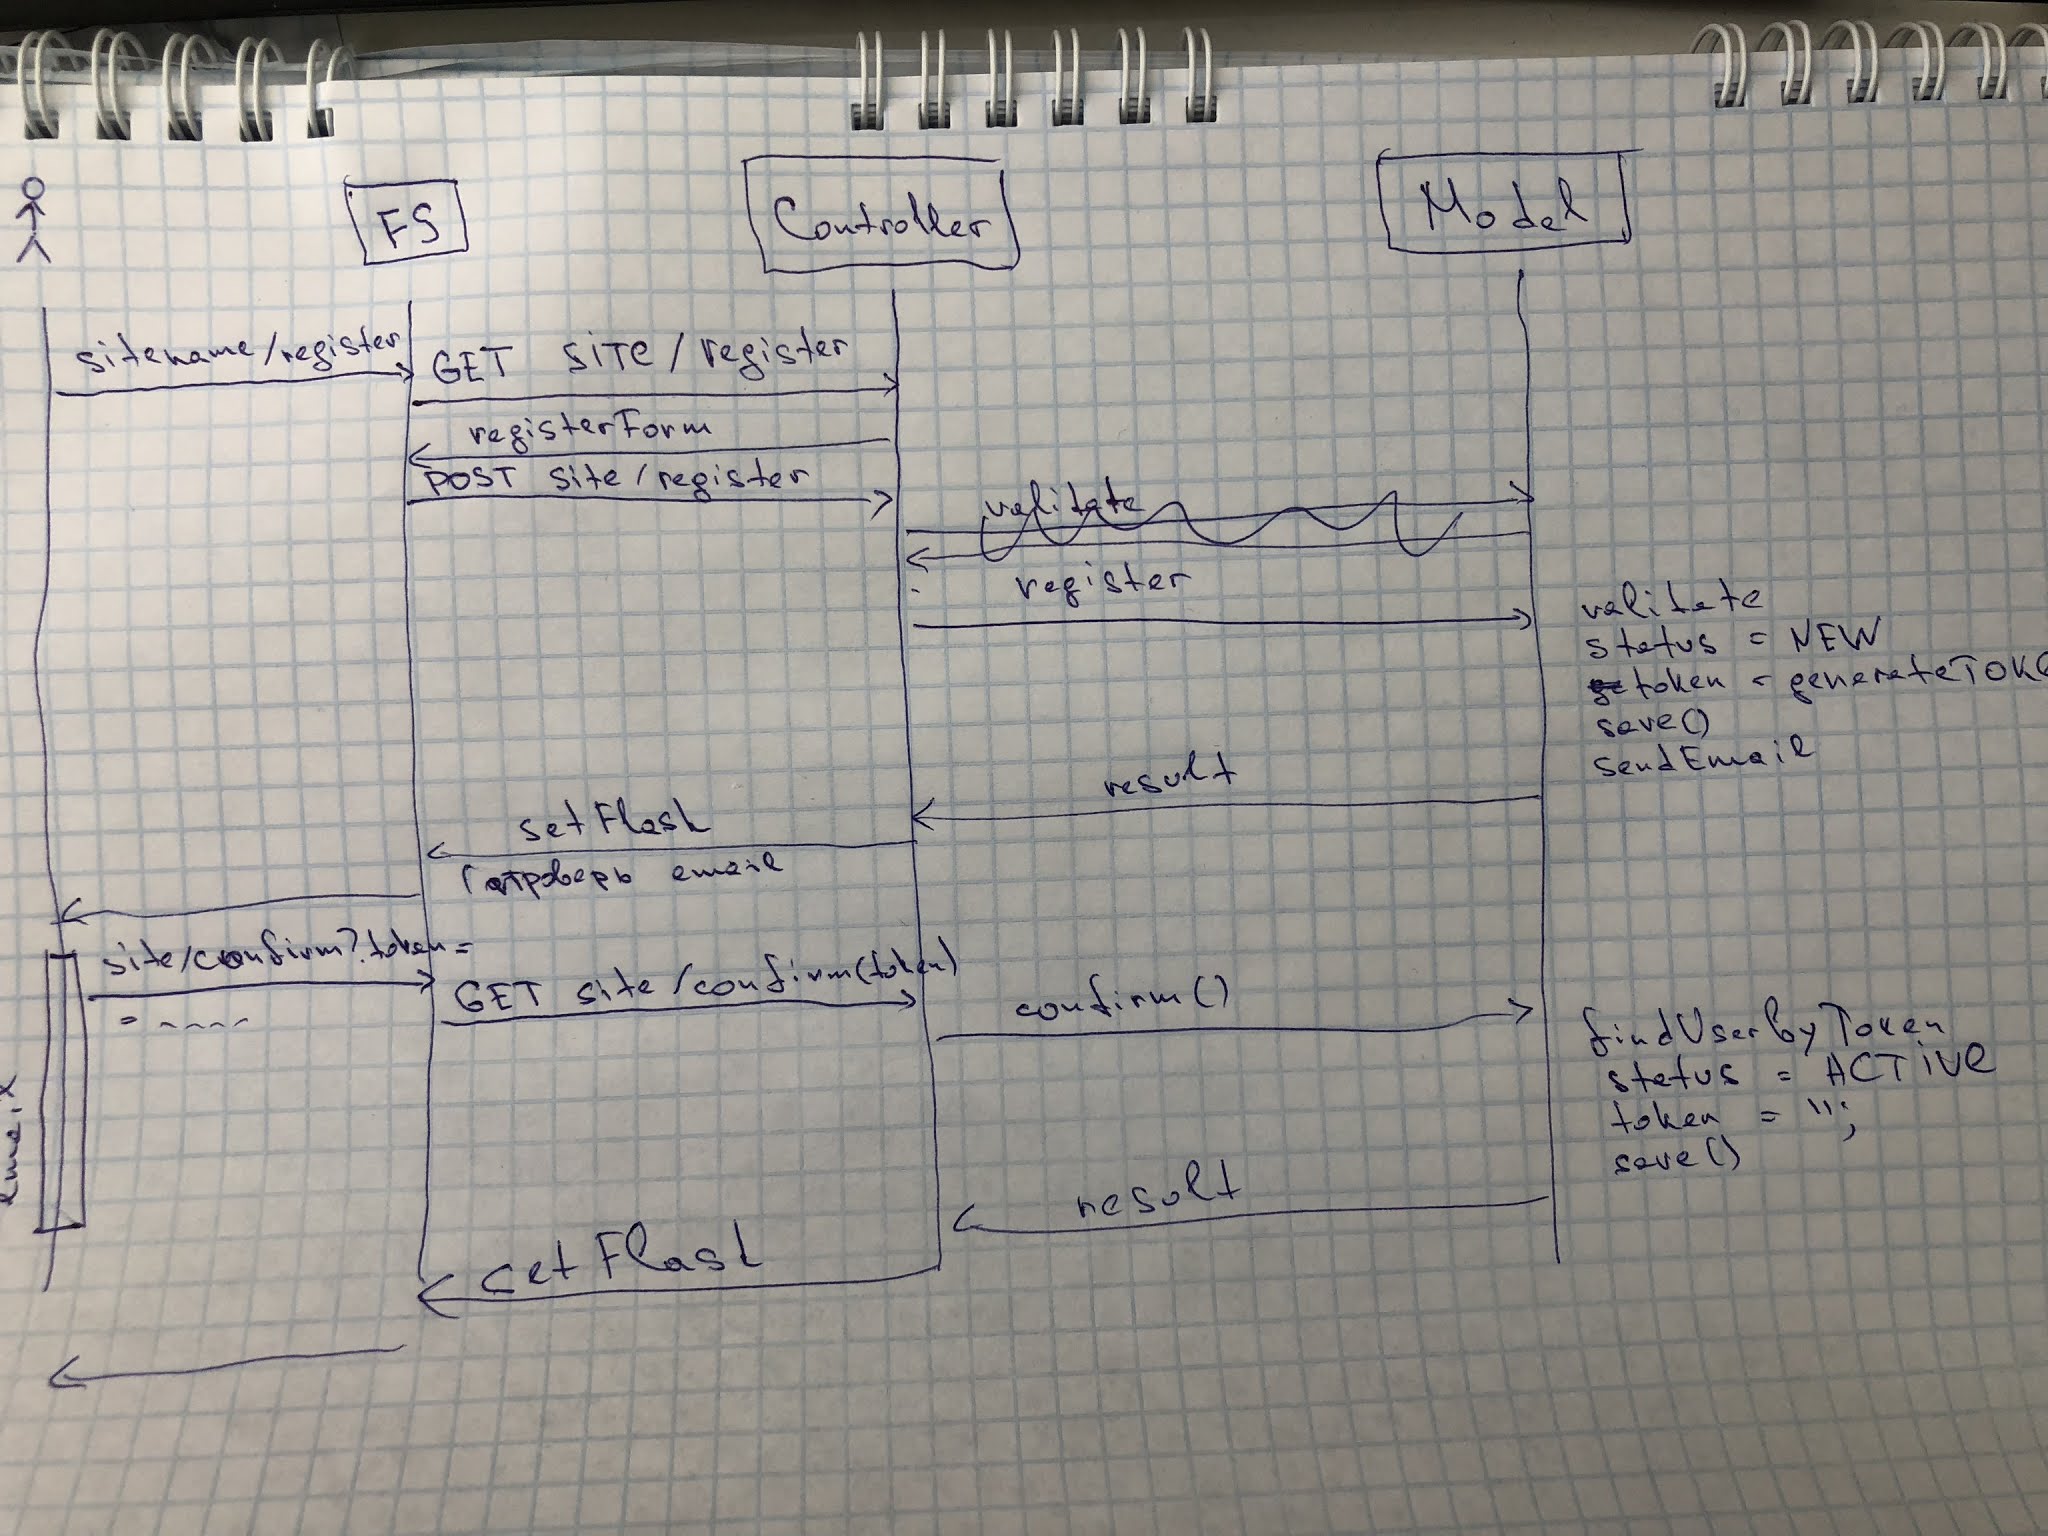 FS
Controller
Model
sitename/register
GET SITE/register
registerForm
POST site/register
valitate
register
valitate
status = NEW
token = generateTOKE
save()
sendEmail
result
setFlash
проверь email
site/confirm?token=
= ----
GET site/confirm(token)
confirm()
findUserbyToken
status = ACTIVE
token = '';
save()
email
result
setFlash